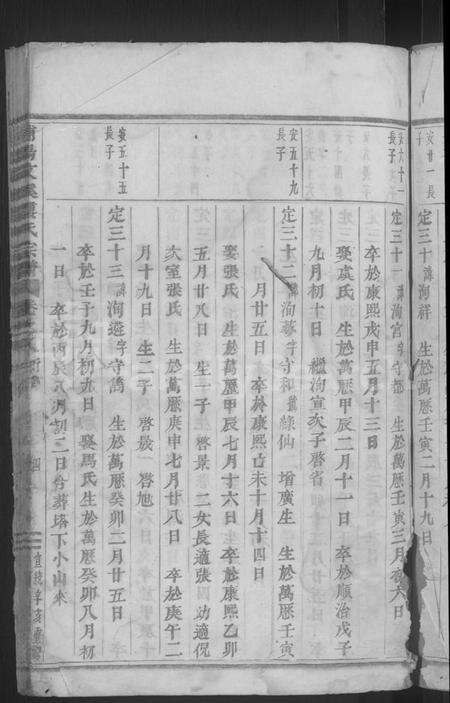 安廿一長子
定三十諱洵祥　生於萬曆壬寅二月十九日
安六十一長子
定三十一諱洵宣字守都　生於萬曆壬寅三月初六日
卒於康熙戊申五月十三日
娶虞氏　生於萬曆甲辰二月十一日　卒於順治戊子
九月初十日　繼洵宣次子啓省
安五十九長子
定三十二諱洵 字守和號綠仙　增廣生　生於萬曆壬寅
月廿五日　卒於康熙 未十月十四日
娶張氏　生於萬曆甲辰七月十六日　卒於康熙乙卯
五月廿八日　生一子　啓景　二女長適張　四幼適倪
次室張氏　生於萬曆庚申七月廿八日　卒於庚午二
月十九日　生二子　啓晟　啓旭
安五十五長子
定三十三諱洵 字守 　生於萬曆癸卯二月廿五日
卒於壬子九月初九日　娶馬氏生於萬曆癸卯八月初
一日　卒於丙 八月初二日合葬塔下小山來
氏宗譜